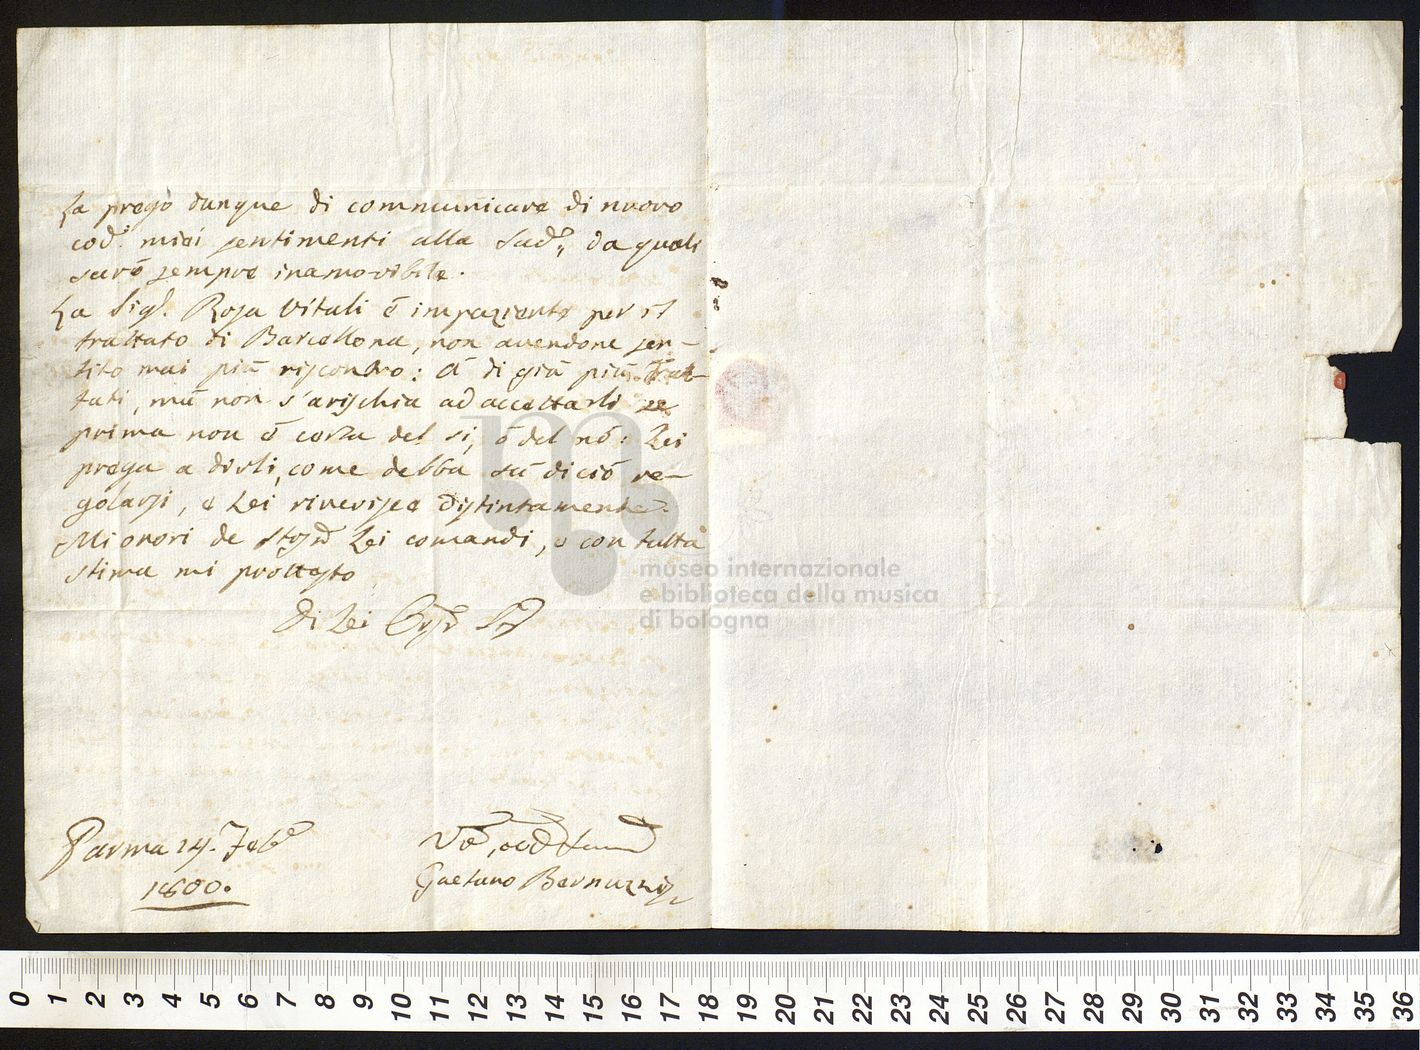 La prego dunque di communicare di nuovo
cod.i miei sentimenti alla Sud.a, da quali
sarò sempre inamovibile.
La Sig.a Rosa Vitali è impaziente per il
trattato di Barcellona, non avendone sen-
tito mai più riscontro: à di già più Trat-
tati, mà non s'arischia ad accettarli se
prima non è certa del si, ò del nò: Lei
prega a dirli, come debba sù di ciò re-
golarsi, e Lei riverisce distintamente.
Mi onori de Lei comandi, e con tutta
stima mi prottesto
Di Lei
Parma 14. Feb.o
1800.
Gaetano Bernuzzi
museo internazionale
e biblioteca della musica
di bologna
0 1 2 3 4 5 6 7 8 9 10 11 12 13 14 15 16 17 18 19 20 21 22 23 24 25 26 27 28 29 30 31 32 33 34 35 36